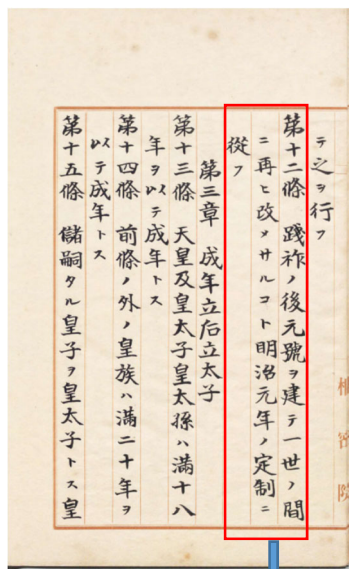 テ之ヲ行フ
第十二條 踐祚ノ後元號ヲ建テ一世ノ間
ニ再ヒ改メサルコト明治元年ノ定制ニ
從フ
第三章 成年立后立太子
第十三條 天皇及皇太子皇太孫ハ滿十八
年ヲ以テ成年トス
第十四條 前條ノ外ノ皇族ハ滿二十年ヲ
以テ成年トス
第十五條 儲嗣タル皇子ヲ皇太子トス皇
樞密院